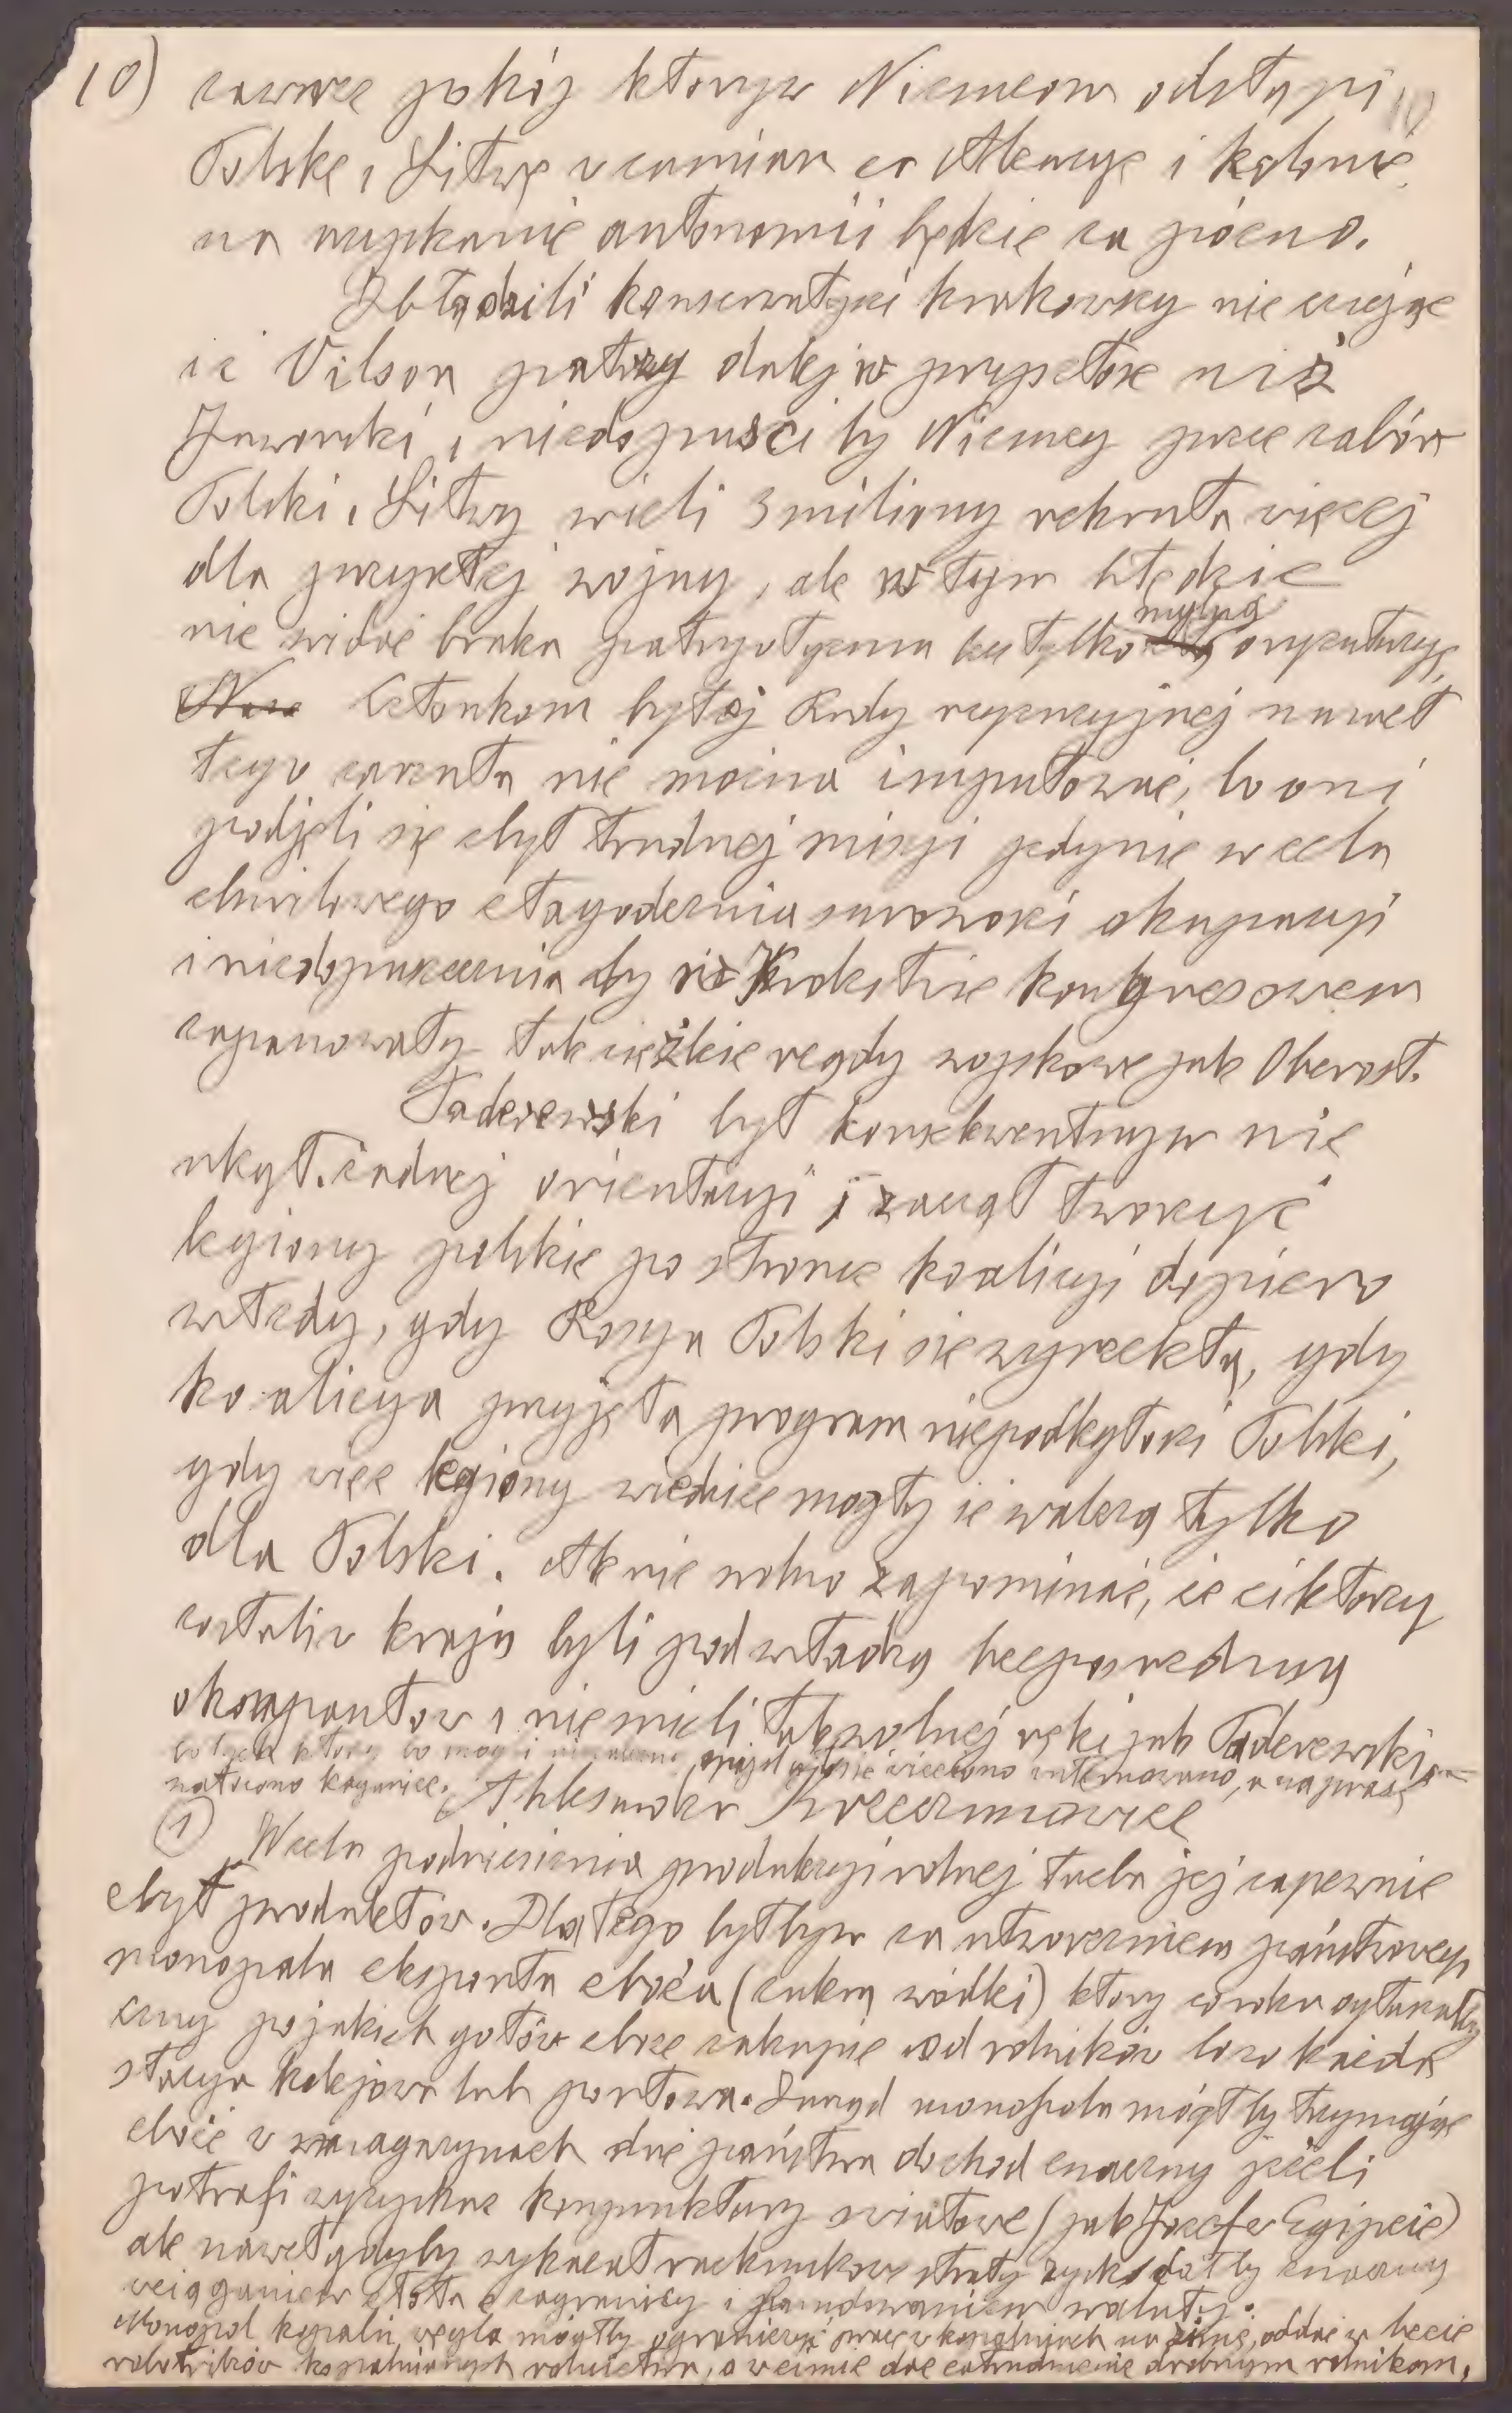 10) zawrze pokój którym Niemcom odstąpi 10
Polskę i Litwę w zamian za Alzacyę i kolonie
na uzyskanie autonomii będzie za pózno.
Zbłądzili konserwatyści krakowscy nie czując
iż Vilson patrzy dalej w przyszłość niż
Jaworski i niedopuści by Niemcy przez zabór
Polski i Litwy wzieli 3 miliony rekruta więcej
dla przyszłej wojny, ale w tym błędzie
nie widać braku patryotyzmu lecz tylko mylną oryentacyę,
Członkom byłej Rady regencyjnej nawet
tego zarzutu nie można imputować, bo oni
podjęli się zbyt trudnej misyi jedynie w celu
chwilowego złagodzenia surowości okupacyi
i niedopuszczenia by w Krolestwie kongresowem
zapanowały tak ciężkie rządy wojskowe jak Oberost.
Paderewski był konsekwentnym nie
zbył żadnej orientacyi i zaczął tworzyć
legiony polskie po stronie koalicyi dopiero
wtedy, gdy Rosya Polski się wyrzekła, gdy
koalicya przyjęła program niepodległości Polski,
gdy więc legiony wiedzieć mogły iż walczą tylko
dla Polski. Ale nie wolno zapominać, że ci ktorzy
zostali w kraju byli pod władzą bezposrednią
okompantow i nie mieli tak wolnej ręki jak Paderewski
bo tych ktorzy internowano, a na prasę
nałożono kaganiec. Aleksander
① W celu podniesienia produkcyi rolnej trzeba jej zapewnić
zbyt produktów. Dlatego byłbym za utworzeniem państwowego
monopolu eksportu zboża (cukru wódki) ktory co roku ogłaszałby
ceny po jakich gotów zboże zakupić od rolników loco każda
stacya kolejowa lub portowa. Zarząd monopolu mógłby trzymając
zboże w magazynach dać państwu dochod znaczny jeżeli
potrafi wyzyskać konjunktury swiatowe (jak Jozef w Egipcie)
ale nawet gdyby wykazał rachunkowe straty zysk dałby znaczny
wciąganiem złota z zagranicy i fundowaniem waluty.
Monopol kopalń węgla mógłby ograniczyć pracę w kopalniach na zimę, oddać w lecie
robotników kopalnianych rolnictwu, a w zimie dać zatrudnienie drobnym rolnikom.